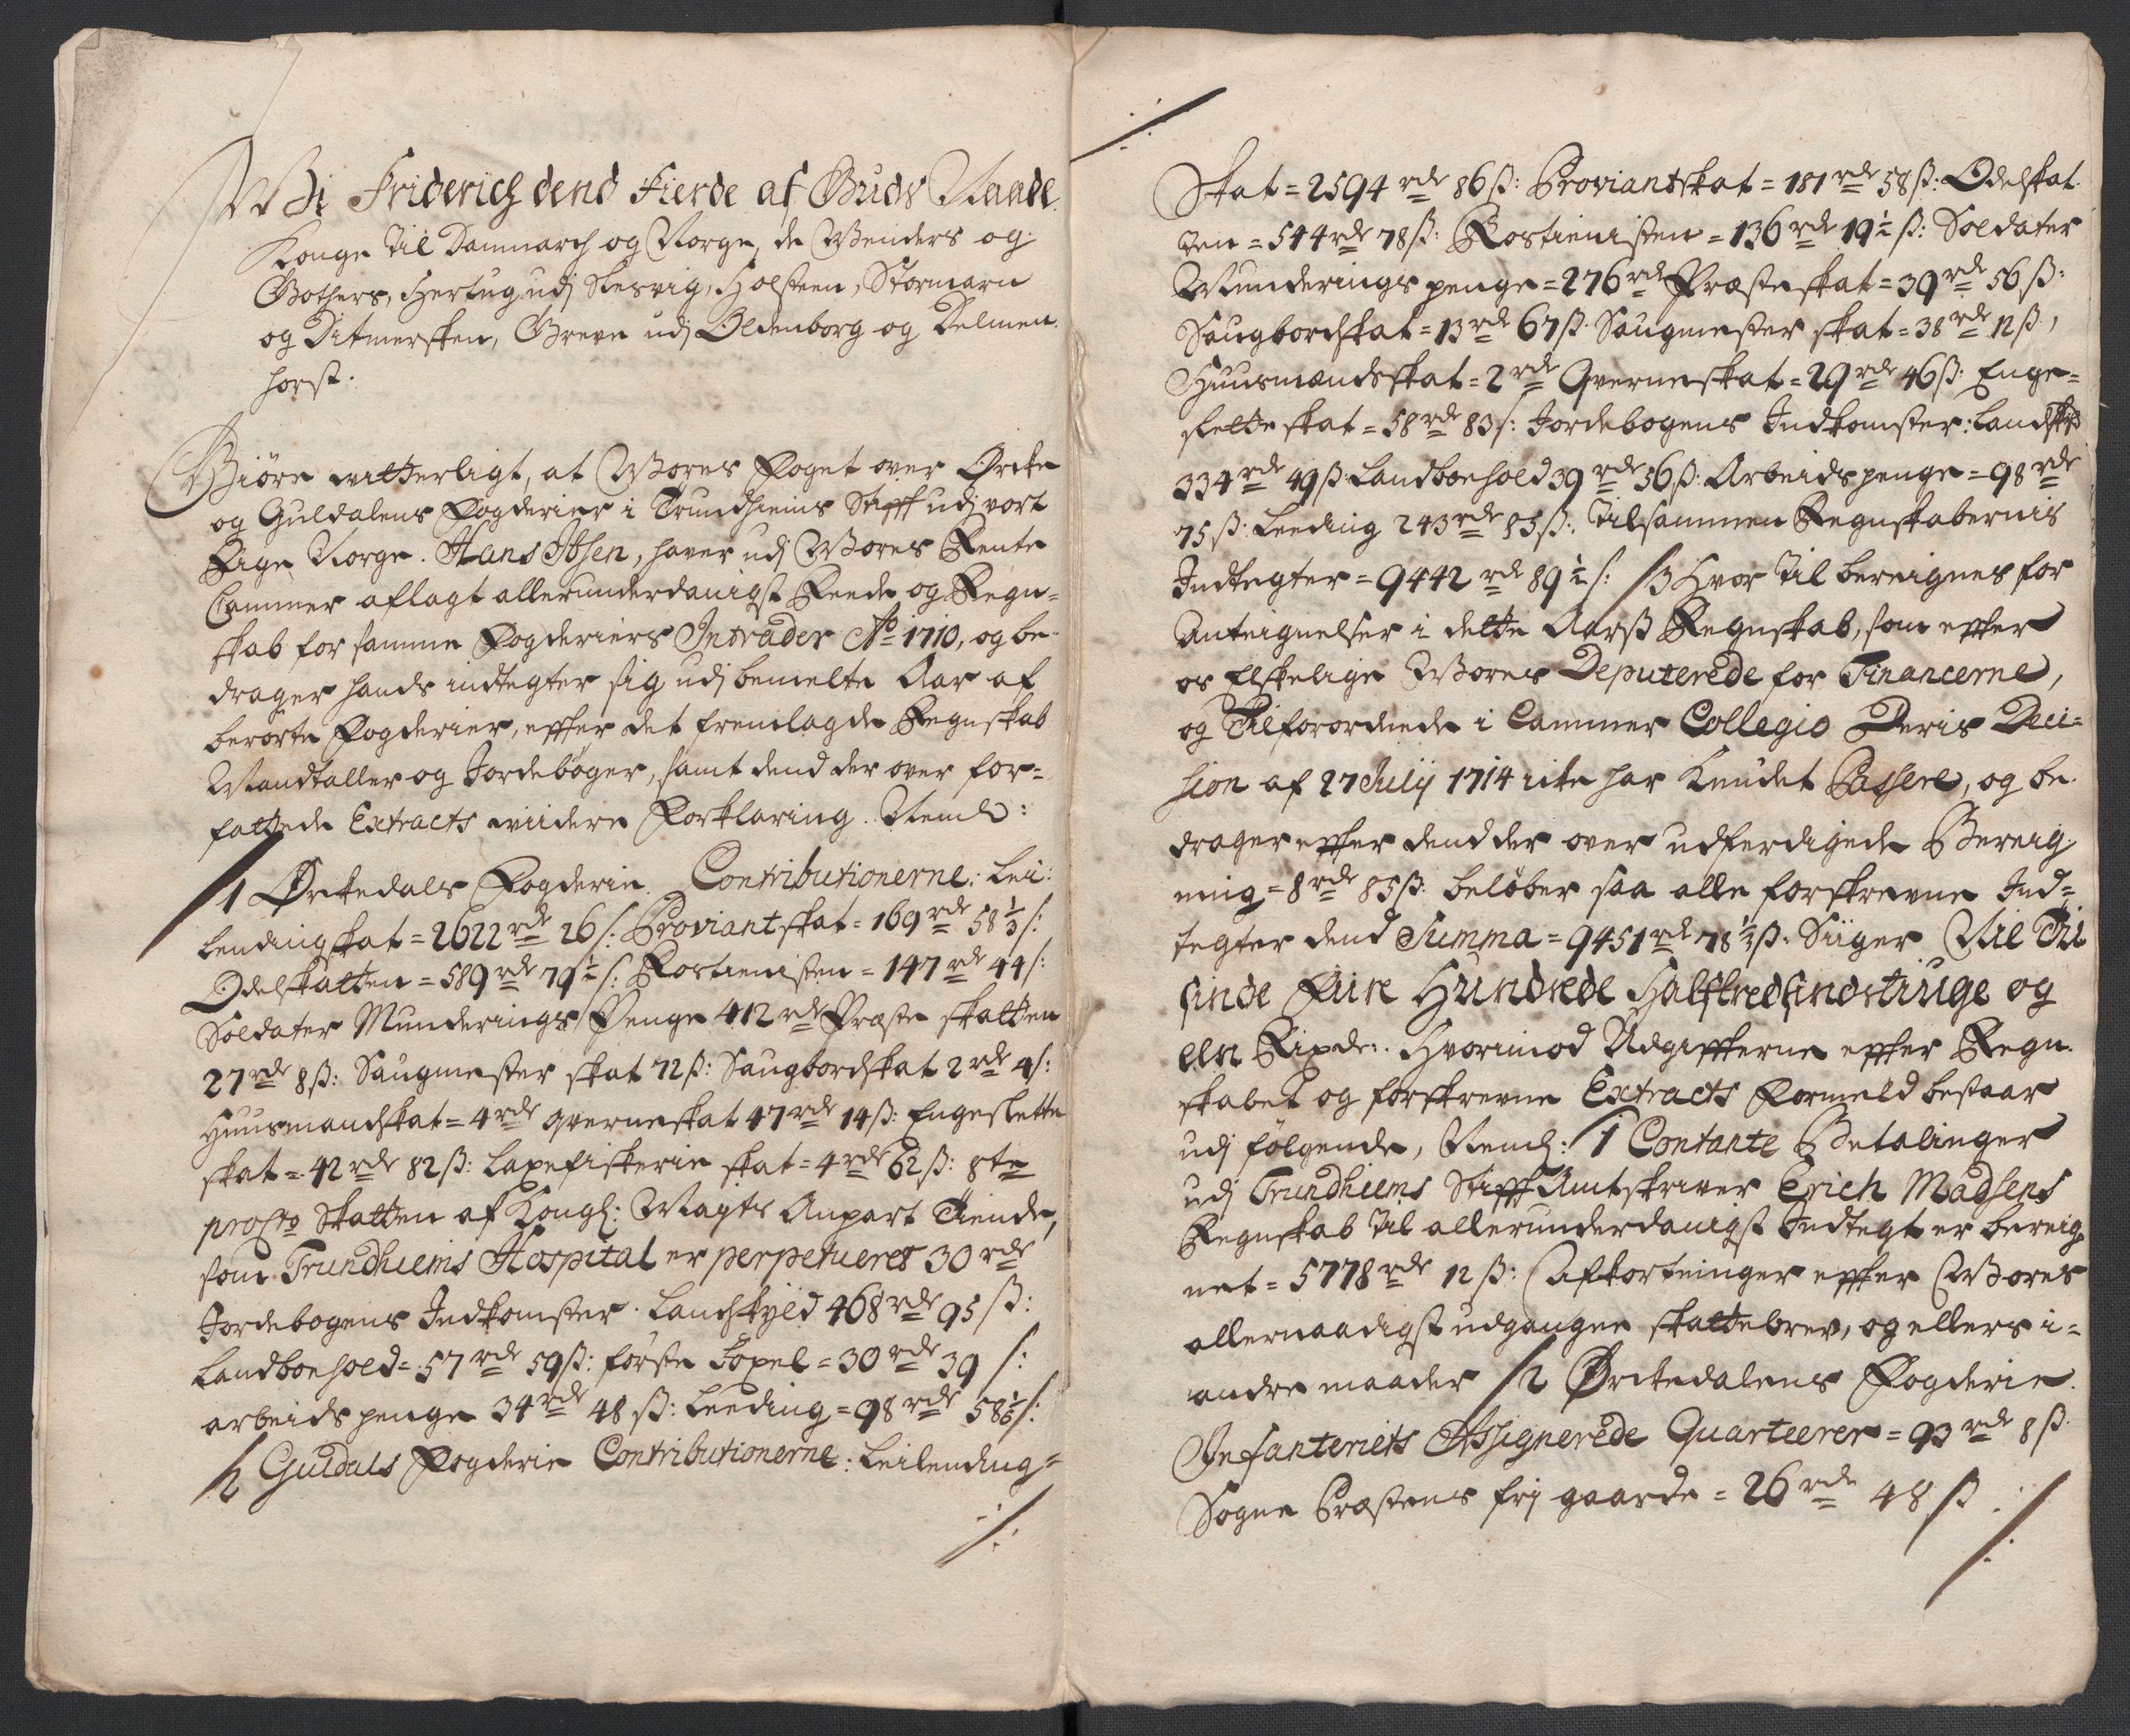 Wi Friderich dend Fierde af Guds Naade
Konge til Danmarch og Norge, de Wenders og
Gothers, Hertug udj Slesvig, Holsteen, Stormarn
og Ditmersken, Greve udj Oldenborg og Delmen
horst.
Giöre witterligt, at Wores Foget over Örcke
og Guldalens Fogderier i Trundhiems Stifft udj vort
Rige Norge. Hans Ibsen, haver udj Wores Rente
Cammer aflagt allerunderdanigst Reede og Regn=
skab for samme Fogderiers Intrader Ao 1710, og be-
drager hands indtegter sig udj bemelte Aar af
berörte Fogderier, effter det fremlagde Regnskab
Mandtaller og Jordebøger, samt dend der over for=
fattede Extracts wiidere Forklaring. Neml:
/1 Örckedals Fogderie. Contributionerne: Lei:
lendingskat = 2622 rdr 26 s: Proviantskat = 169 rdr 58 1/3 s:
Odelskatten = 589 rdr 79 1/2 s: Rostienisten = 147 rdr 44 s:
Soldater Munderings Penge 412 rdr Præste skatten
27 rdr 8 ß: Saugmester skat 72 ß: Saugbordskat 2 rdr 4 s:
Huusmandskat = 4 rdr Qverneskat 47 rdr 14 ß: Engeslette
skat = 42 rdr 82 ß: Laxefiskerie skat = 4 rdr 62 ß: 8te
pro Cto Skatten af Kongl: Mayts Anpart Tiende,
som Trundhiems Hospital er perpetueret 30 rdr
Jordebogens Indkomster. Landskyld 468 rdr 95 ß:
Landboehold = 57 rdr 59 ß: förste = 30 rdr 39 s:
arbeids penge 34 rdr 48 ß: Leeding = 98 rdr 58 1/6 s:
/2 Guldals Fogderie Contributionerne: Leilending=
Skat = 2594 rdr 86 ß: Proviantskat = 181 rdr 58 ß: Odelskat
ten = 544 rdr 78 ß: Rostienisten = 136 rdr 19 1/2 ß: Soldater
Munderings penge = 276 rdr Præste skat = 39 rdr 56 ß:
Saugbordskat = 13 rdr 67 ß Saugmester skat = 38 rdr 12 ß,
Huusmandsskat = 2 rdr Qverneskat = 29 rdr 46 ß: Enge=
slette skat = 58 rdr 83 s: Jordebogens Indkomster: Landsk:
334 rdr 49 ß Landboehold 39 rdr 56 ß: Arbeids penge = 98 rdr
75 ß: Leeding 243 rdr 85 ß: Tilsammen Regnskabernis
Indtegter = 9442 rdr 89 1/2 s: /3 Hvor til bereignes for
Anteignelser i dette Aarß Regnskab, som effter
os Elskelige Wores Deputerede for Financerne,
og Tilforordnede i Cammer Collegio Deris Deci=
sion af 27 Julij 1714 icke har kundet Passere, og be-
drager effter dend der over udferdigede Bereig-
ning = 8 rdr 85 ß: belöber saa alle forskrevne Ind=
tegter dend Summa = 9451 rdr 78 1/2 ß. Siiger Nie Tu
sinde Fiire Hundrede Halftredsindstiuge og
een Rixdr: Hvorimod Udgiffterne effter Regn-
skabet og forskrevne Extracts Formeld bestaar
udj fölgende, Neml: /1 Contante Betalinger
udj Trundhiems Stifft Amtskriver Erich Madsens
Regnskab til allerunderdanigst Indtegt er bereig
net = 5778 rdr 12 ß: Afkortninger effter Wores
allernaadigst udgangne skattebrev, og ellers i=
andre maader /2 Örckedalens Fogderie.
Infanteriets Assignerede Quarteerer = 93 rdr 8 ß
Sogne Præstens frj gaarde = 26 rdr 48 ß